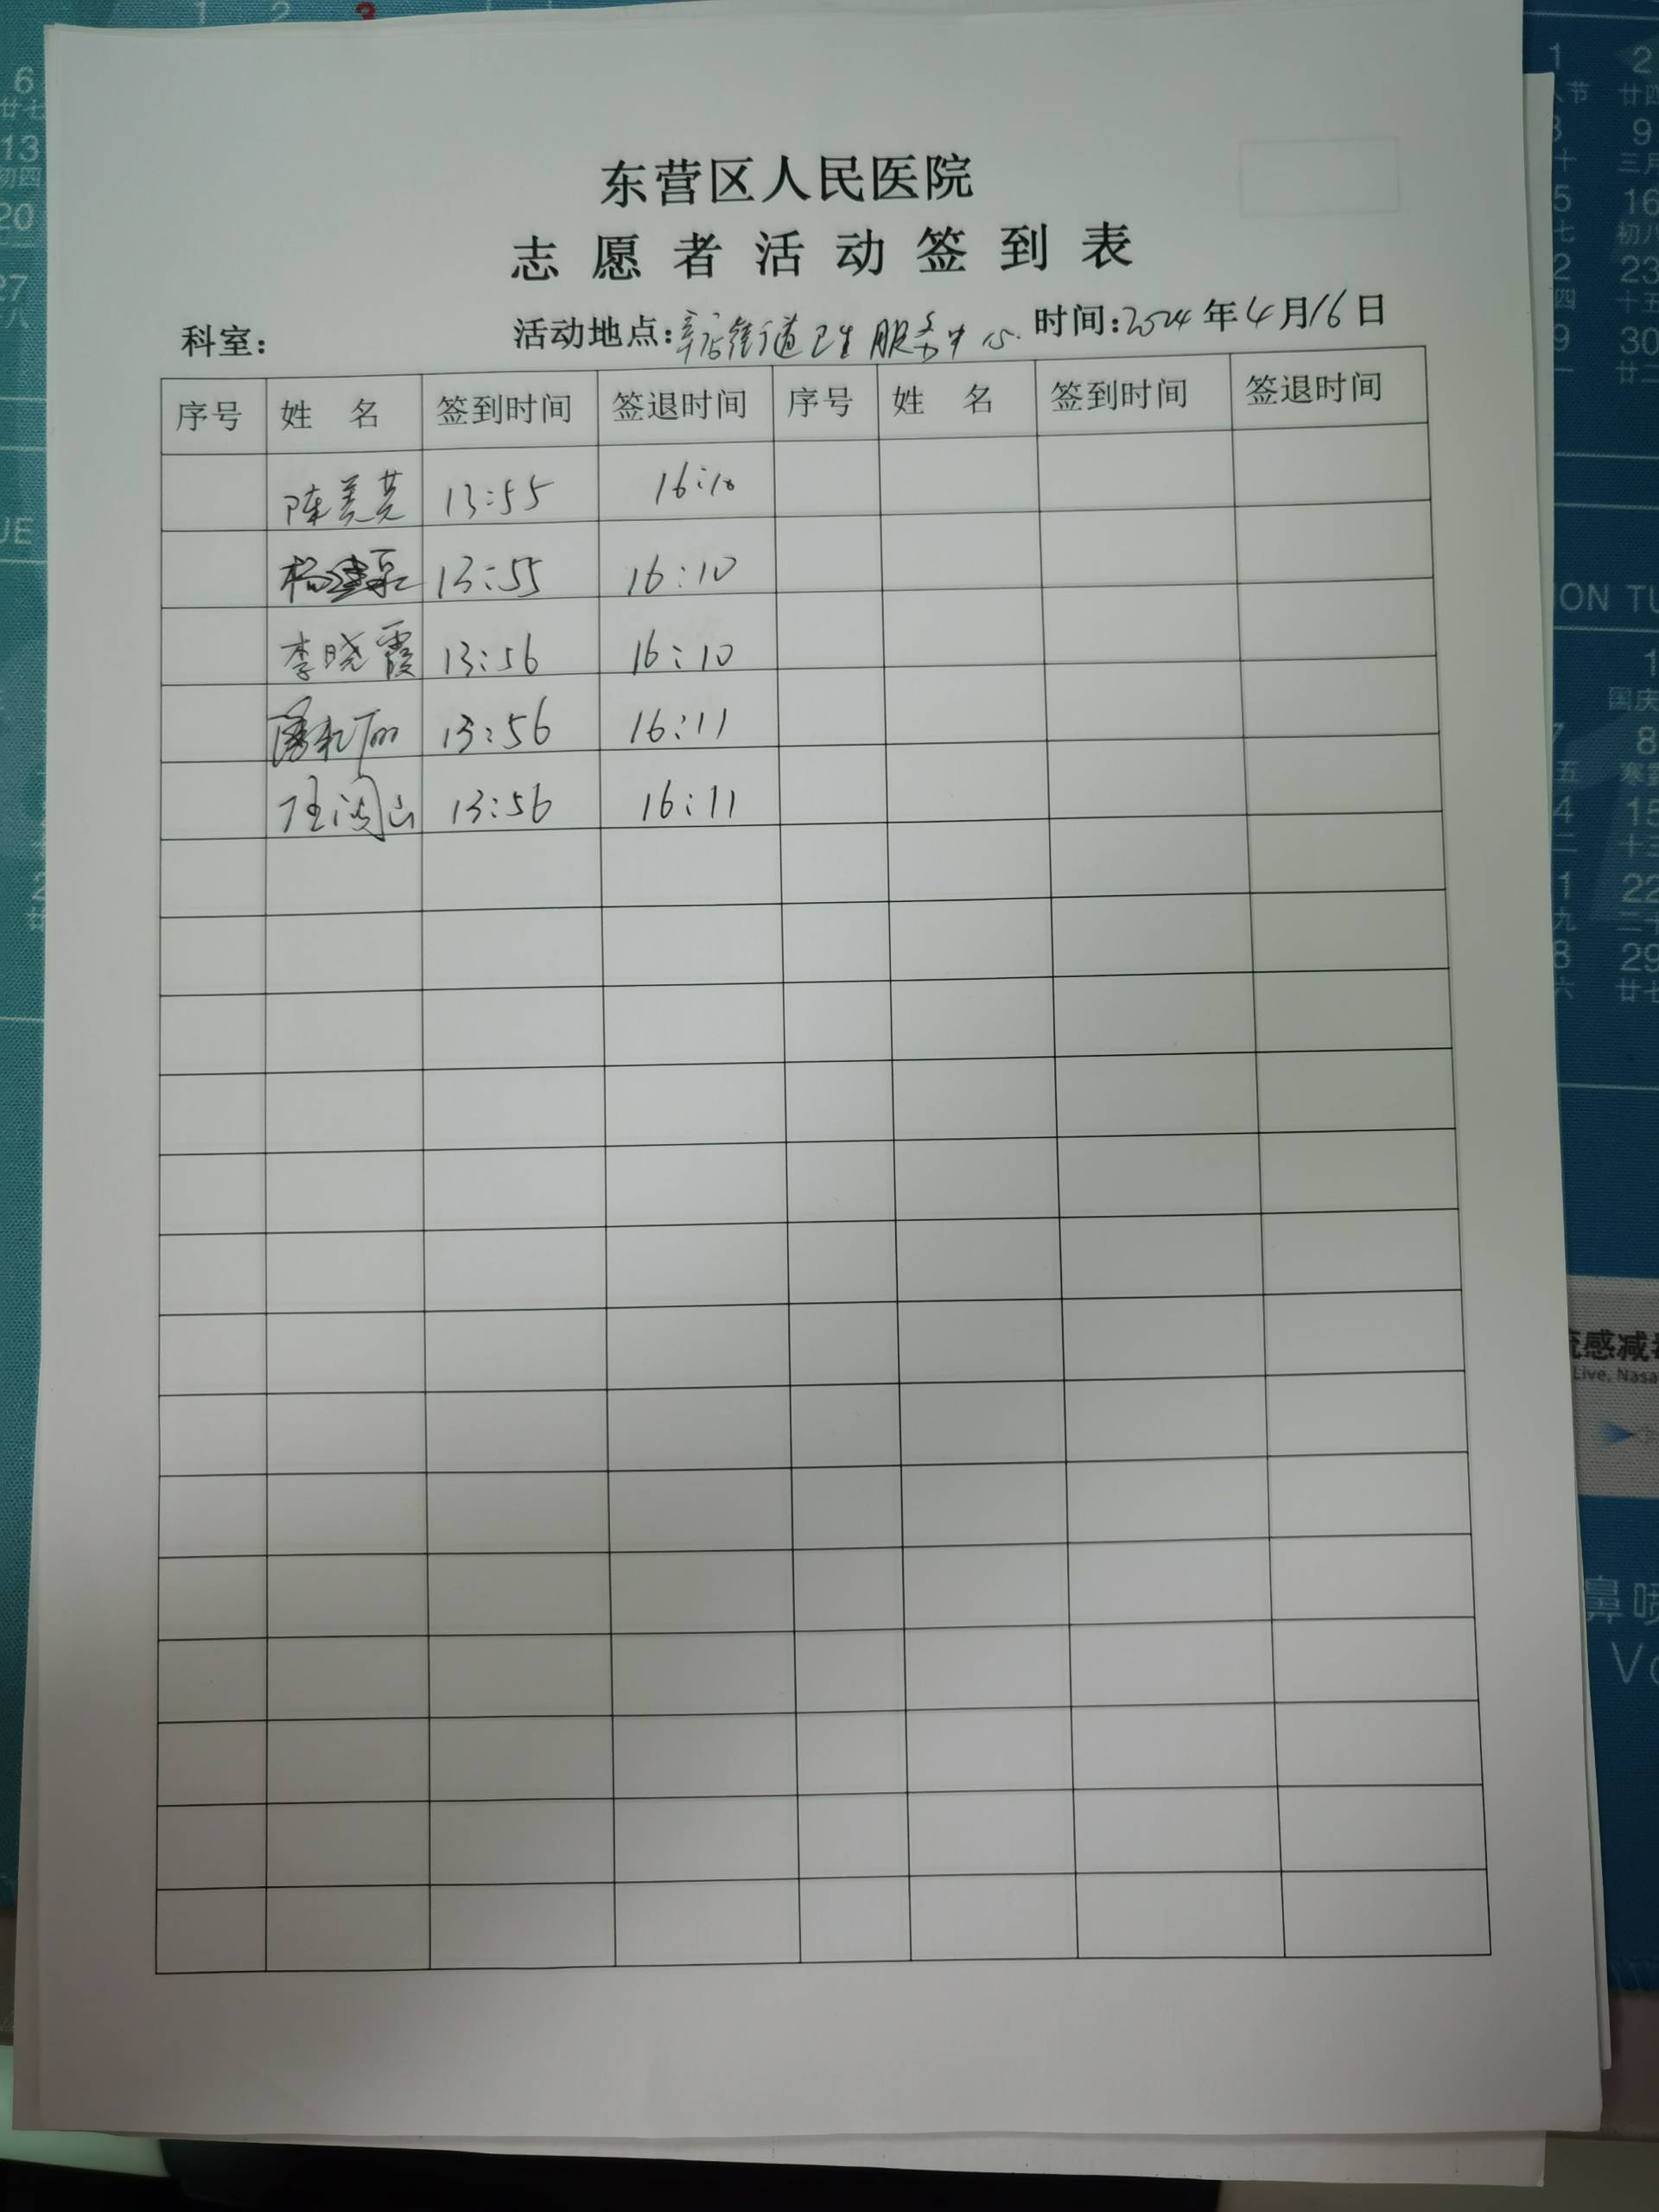 东营区人民医院
志愿者活动签到表
科室： 活动地点：辛店街道卫生服务中心. 时间：2024年4月16日
序号 姓名 签到时间 签退时间 序号 姓名 签到时间 签退时间
陈美芸 13:55 16:10
杨 13:55 16:10
李晓霞 13:56 16:10
13:56 16:11
13:56 16:11